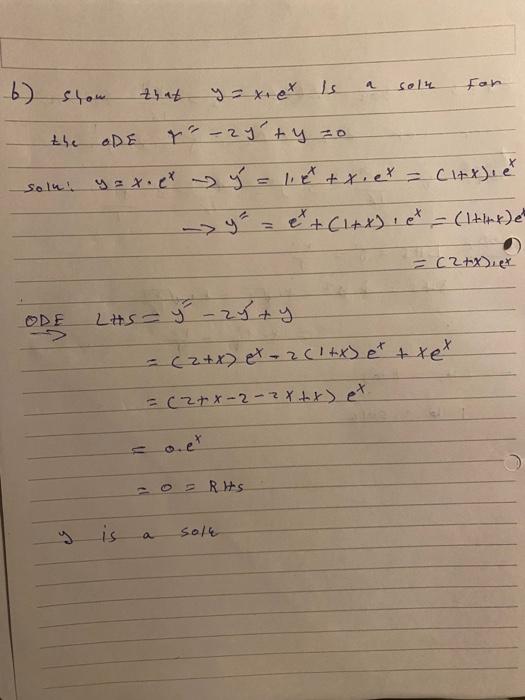 b) show that y = x.e^x Is a soln For
the ODE y'' - 2y' + y = 0
soln: y = x.e^x → y' = 1.e^x + x.e^x = (1+x).e^x
→ y'' = e^x + (1+x).e^x = (1+1+x)e^x
= (2+x).e^x
ODE LHS = y'' - 2y' + y
→
= (2+x)e^x - 2(1+x)e^x + xe^x
= (2+x-2-2x+x)e^x
= 0.e^x
= 0 = RHS
y is a soln